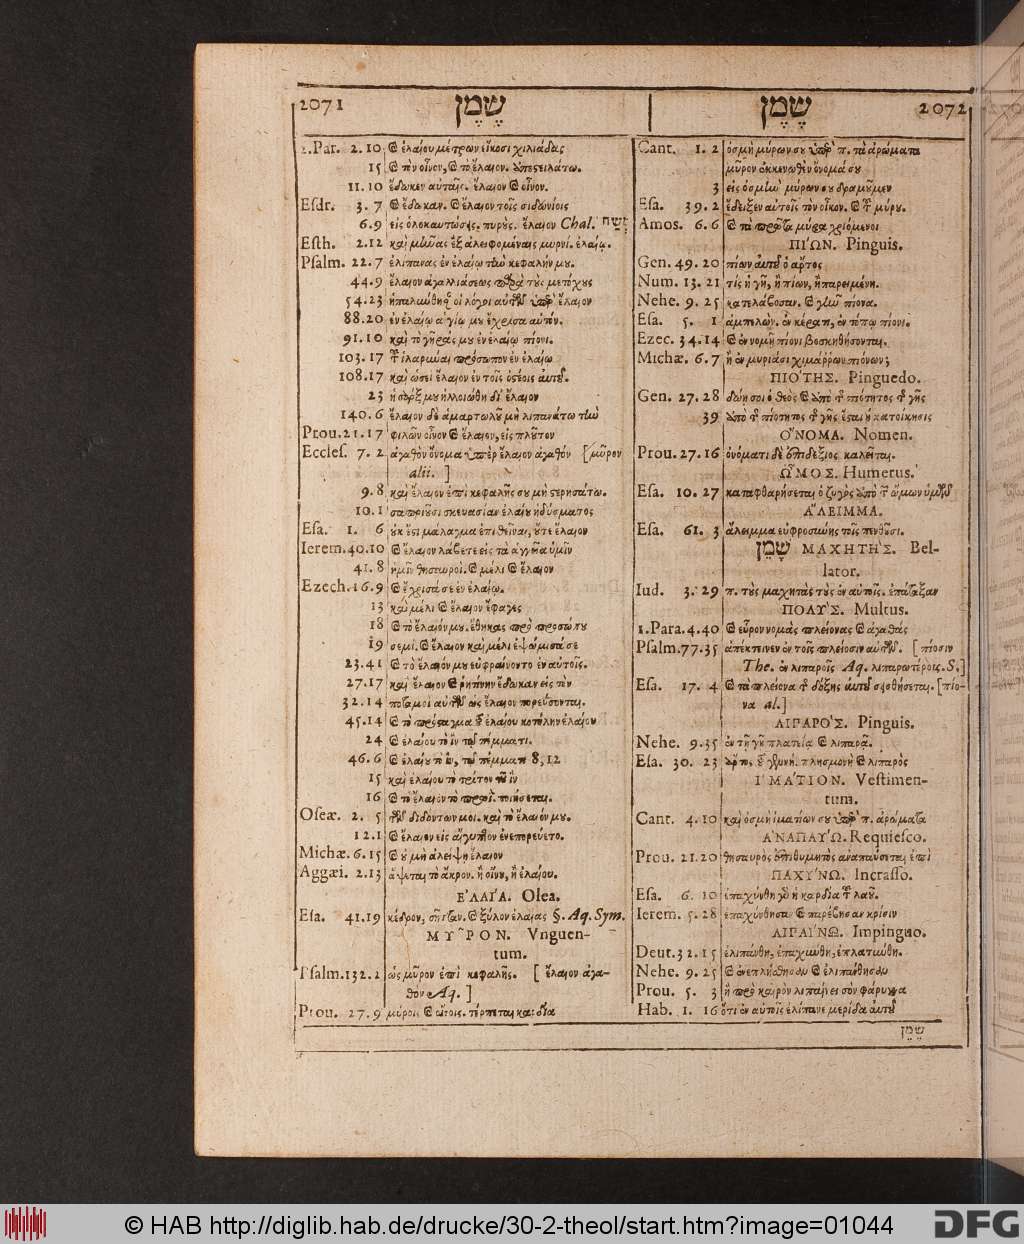 2071 שֶׁמֶן
2.Par. 2.10 & ἐλαίου μέτρων εἴκοσι χιλιάδας
15 & τὸν οἶνον, & τὸ ἔλαιον. ἀποστειλάτω.
11.10 ἔδωκεν αὐταῖς. ἔλαιον & οἶνον.
Esdr. 3.7 & ἔδωκαν. & ἔλαιον τοῖς σιδωνίοις
6.9 εἰς ὁλοκαυτώσεις. πυροὺς. ἔλαιον Chal. מְשַׁח
Esth. 2.12 καὶ μῆνας ἓξ ἀλειφομέναις μυρνί. ἐλαίῳ.
Psalm. 22.7 ἐλίπανας ἐν ἐλαίῳ τὴν κεφαλήν μου.
44.9 ἔλαιον ἀγαλλιάσεως παρὰ τοὺς μετόχους
54.23 ἡπαλύνθησαν οἱ λόγοι αὐτῶν ὑπὲρ ἔλαιον
88.20 ἐν ἐλαίῳ ἁγίῳ μου ἔχρισα αὐτόν.
91.10 καὶ τὸ γῆράς μου ἐν ἐλαίῳ πίονι.
103.17 τοῦ ἱλαρῦναι πρόσωπον ἐν ἐλαίῳ
108.17 καὶ ὡσεὶ ἔλαιον ἐν τοῖς ὀστέοις αὐτοῦ.
23 ἡ σάρξ μου ἠλλοιώθη δι' ἔλαιον
140.6 ἔλαιον δὲ ἁμαρτωλοῦ μὴ λιπανάτω τὴν
Prou. 21.17 φιλῶν οἶνον & ἔλαιον, εἰς πλοῦτον
Eccles. 7.2 ἀγαθὸν ὄνομα ὑπὲρ ἔλαιον ἀγαθόν [μῦρον
alii. ]
9.8 καὶ ἔλαιον ἐπὶ κεφαλῆς σου μὴ ὑστερησάτω.
10.1 σαπριοῦσι σκευασίαν ἐλαίου ἡδύσματος
Esa. 1. 6 οὐκ ἔστι μάλαγμα ἐπιθεῖναι, οὔτε ἔλαιον
Ierem. 40.10 & ἔλαιον λάβετε εἰς τὰ ἀγγεῖα ὑμῶν
41.8 ἡμῖν θησαυροί. & μέλι & ἔλαιον
Ezech. 16.9 & ἔχρισά σε ἐν ἐλαίῳ.
13 καὶ μέλι & ἔλαιον ἔφαγες
18 & τὸ ἔλαιόν μου. ἔθηκας πρὸ προσώπου
19 σεμί. & ἔλαιον καὶ μέλι ἐψώμισά σε
23.41 & τὸ ἔλαιόν μου εὐφραίνοντο ἐν αὐτοῖς.
27.17 καὶ ἔλαιον & ῥητίνην ἔδωκαν εἰς τὸν
32.14 ποταμοὶ αὐτῶν ὡς ἔλαιον πορεύσονται.
45.14 & τὸ πρόσταγμα τοῦ ἐλαίου κοτύλην ἐλαίου
24 & ἐλαίου τὸ ἲν τῷ πέμματι.
46.6 & ἐλαίου τὸ ἲν, τῷ πέμματι 8, 12
15 καὶ ἐλαίου τὸ τρίτον τοῦ ἲν
16 & τὸ ἔλαιον τὸ πρωΐ. ποιήσεται.
Oseæ. 2. 5 τῶν διδόντων μοι. καὶ τὸ ἔλαιόν μου.
12.1 & ἔλαιον εἰς αἴγυπτον ἐνεπορεύετο.
Michæ. 6.15 & οὐ μὴ ἀλείψῃ ἔλαιον
Aggæi. 2.13 ἅψεται τὸ ἄκρον. ἢ οἴνου, ἢ ἐλαίου.
ἘΛΑΙ´Α. Olea.
Esa. 41.19 κέδρον, & ξύλον ἐλαίας §. Aq. Sym.
ΜΥ῀ΡΟΝ. Vnguen-
tum.
Psalm. 132.2 ὡς μῦρον ἐπὶ κεφαλῆς. [ ἔλαιον ἀγα-
θὸν Aq. ]
Prou. 27.9 μύροις & οἴνοις. τέρπεται καρδία
שֶׁמֶן 2072
Cant. 1. 2 ὀσμὴ μύρων σου ὑπὲρ π. τὰ ἀρώματα
μῦρον ἐκκενωθὲν ὄνομά σου
3 εἰς ὀσμὴν μύρων σου δραμοῦμεν
Esa. 39.2 ἔδειξεν αὐτοῖς τὸν οἶκον. & τοῦ μύρου.
Amos. 6.6 & τὰ πρῶτα μύρα χριόμενοι
ΠΙ´ΩΝ. Pinguis.
Gen. 49.20 πίων αὐτοῦ ὁ ἄρτος
Num. 13.21 τίς ἡ γῆ, ἢ πίων, ἢ παρειμένη.
Nehe. 9.25 κατελάβοσαν. & γῆν πίονα.
Esa. 5. 1 ἀμπελών. ἐν κέρατι, ἐν τόπῳ πίονι.
Ezec. 34.14 & ἐν νομῇ πίονι βοσκηθήσονται.
Michæ. 6.7 ἢ ἐν μυριάσι χιμάρρων πιόνων;
ΠΙΟ´ΤΗΣ. Pinguedo.
Gen. 27.28 δῴη σοι ὁ θεὸς & ἀπὸ τῆς πιότητος τῆς γῆς
39 ἀπὸ τῆς πιότητος τῆς γῆς ἔσται ἡ κατοίκησις
Ὄ´ΝΟΜΑ. Nomen.
Prou. 27.16 ὀνόματι δὲ ἐπιδέξιος καλεῖται.
Ὦ˜ΜΟΣ. Humerus.
Esa. 10.27 καταφθαρήσεται ὁ ζυγὸς ἀπὸ τῶν ὤμων ὑμῶν
ἌΛΕΙΜΜΑ.
Esa. 61. 3 ἄλειμμα εὐφροσύνης τοῖς πενθοῦσι.
שָׁמֵן ΜΑΧΗΤΗ`Σ. Bel-
lator.
Iud. 3.29 π. τοὺς μαχητὰς τοὺς ἐν αὐτοῖς. ἐπάταξαν
ΠΟΛΥ`Σ. Multus.
1.Para. 4.40 & εὗρον νομὰς πλείονας & ἀγαθὰς
Psalm. 77.35 ἀπέκτεινεν ἐν τοῖς πλείοσιν αὐτῶν. [πίοσιν
The. ἐν λιπαροῖς Aq. λιπαρωτέροις. S.]
Esa. 17. 4 & τὰ πλείονα τῆς δόξης αὐτοῦ σεισθήσεται. [πίο-
να al.]
ΛΙΠΑΡΟ`Σ. Pinguis.
Nehe. 9.35 ἐν τῇ γῇ πλατείᾳ & λιπαρᾷ.
Esa. 30. 23 ἄρτος. πλησμονὴ & λιπαρὸς
Ἱ ΜΑ´ΤΙΟΝ. Vestimen-
tum.
Cant. 4.10 καὶ ὀσμὴ ἱματίων σου ὑπὲρ π. ἀρώματα
ἈΝΑΠΑΥ´Ω. Requiesco.
Prou. 21.20 θησαυρὸς ἐπιθυμητὸς ἀναπαύσεται ἐπὶ
ΠΑΧΥ´ΝΩ. Incrasso.
Esa. 6. 10 ἐπαχύνθη γὰρ ἡ καρδία τοῦ λαοῦ.
Ierem. 5.28 ἐπαχύνθησαν & παρέβησαν κρίσιν
ΛΙΠΑΙ´ΝΩ. Impinguo.
Deut. 32.15 ἐλιπάνθη, ἐπαχύνθη, ἐπλατύνθη.
Nehe. 9.25 & ἐνεπλήσθησαν & ἐλιπάνθησαν
Prou. 5. 3 ἣ πρὸς καιρὸν λιπαίνει σὸν φάρυγγα
Hab. 1. 16 ὅτι ἐν αὐτοῖς ἐλίπανε μερίδα αὐτοῦ
שֶׁמֶן
© HAB http://diglib.hab.de/drucke/30-2-theol/start.htm?image=01044
DFG